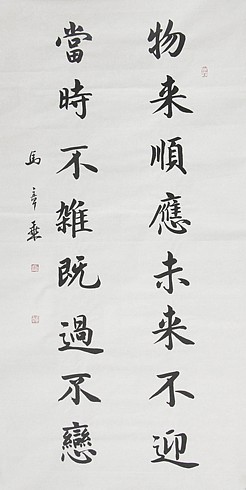 物来順應未来不迎
當時不雑既過不戀
馬章乘